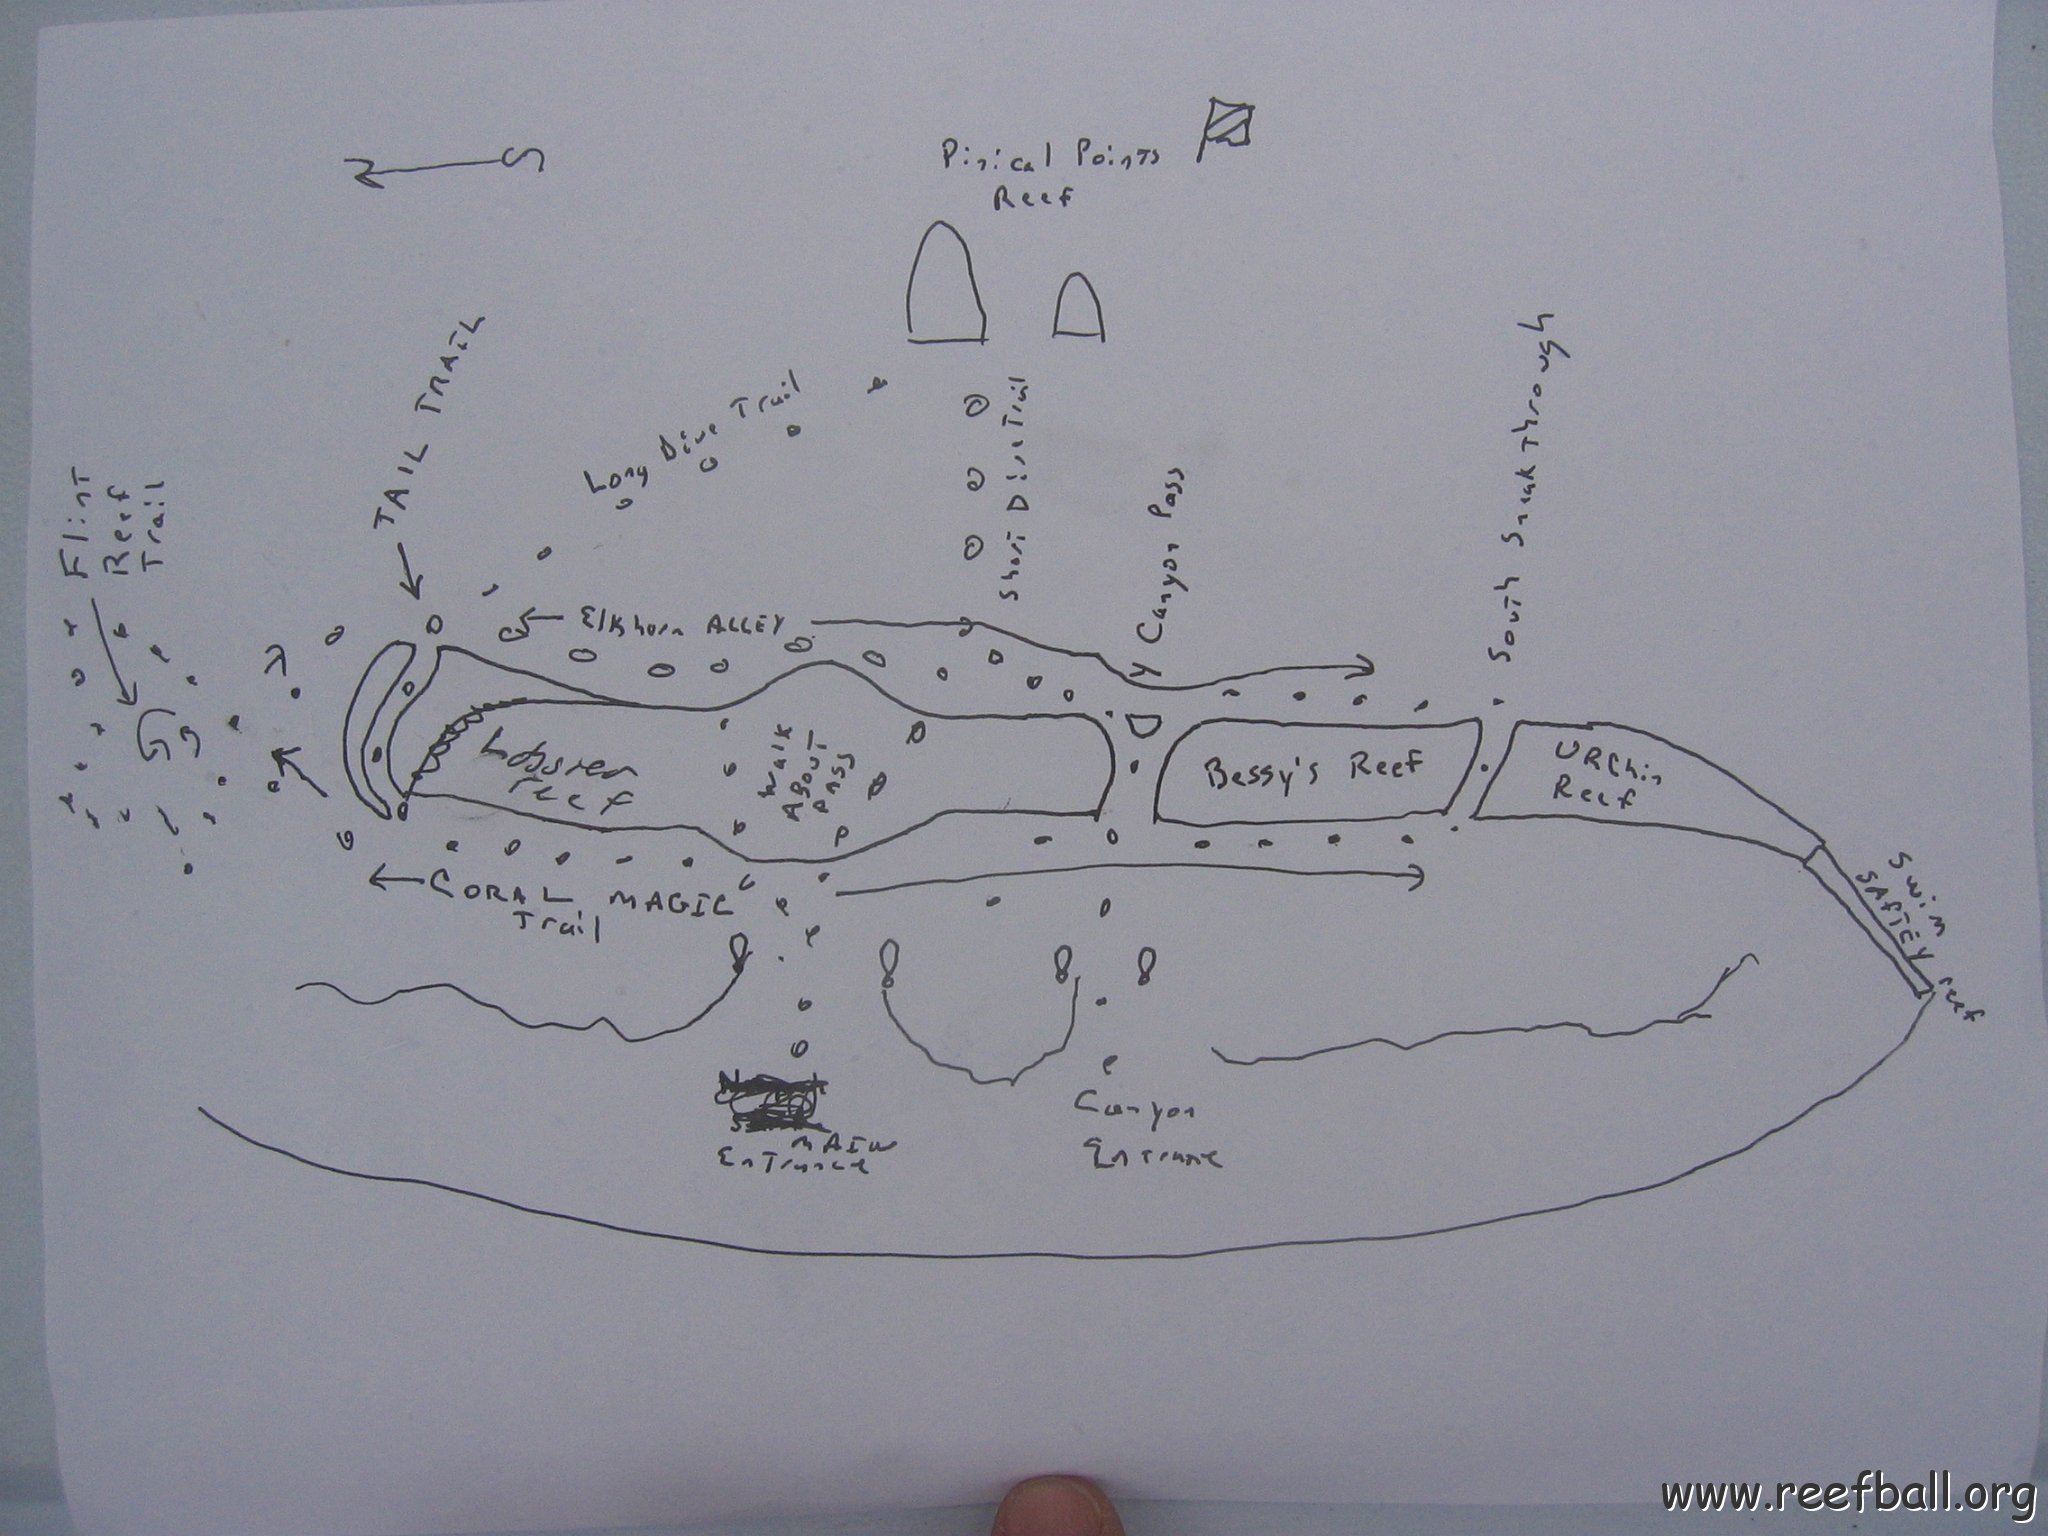 S
Pinical Points
Reef
TAIL TRAIL
Long Dive Trail
Short Dive Trail
Canyon Pass
South Sneak through
Flint
Reef
Trail
Elkhorn ALLEY
Lobster
reef
Walk
About
Pass
Bessy's Reef
URChin
Reef
SWIM
SAFTEY reef
CORAL MAGIC
Trail
MAIN
EnTrance
Canyon
EnTrance
www.reefball.org